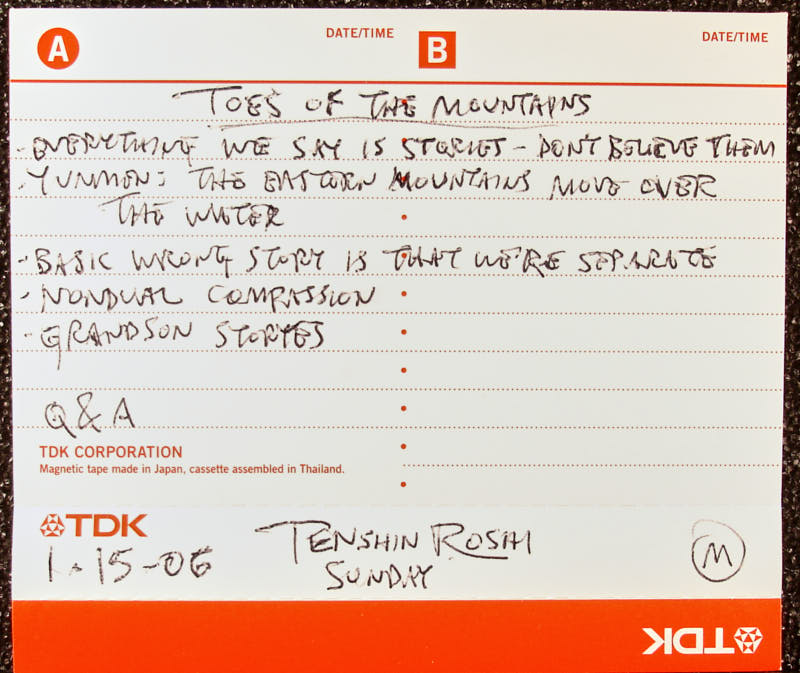 A DATE/TIME B DATE/TIME
TOES OF THE MOUNTAINS
- EVERYTHING WE SAY IS STORIES - DON'T BELIEVE THEM
- YUNMEN: THE EASTERN MOUNTAINS MOVE OVER
THE WATER
- BASIC WRONG STORY IS THAT WE'RE SEPARATE
- NONDUAL COMPASSION
- GRANDSON STORIES
Q & A
TDK CORPORATION
Magnetic tape made in Japan, cassette assembled in Thailand.
TDK
1-15-06 TENSHIN ROSHI M
SUNDAY
TDK